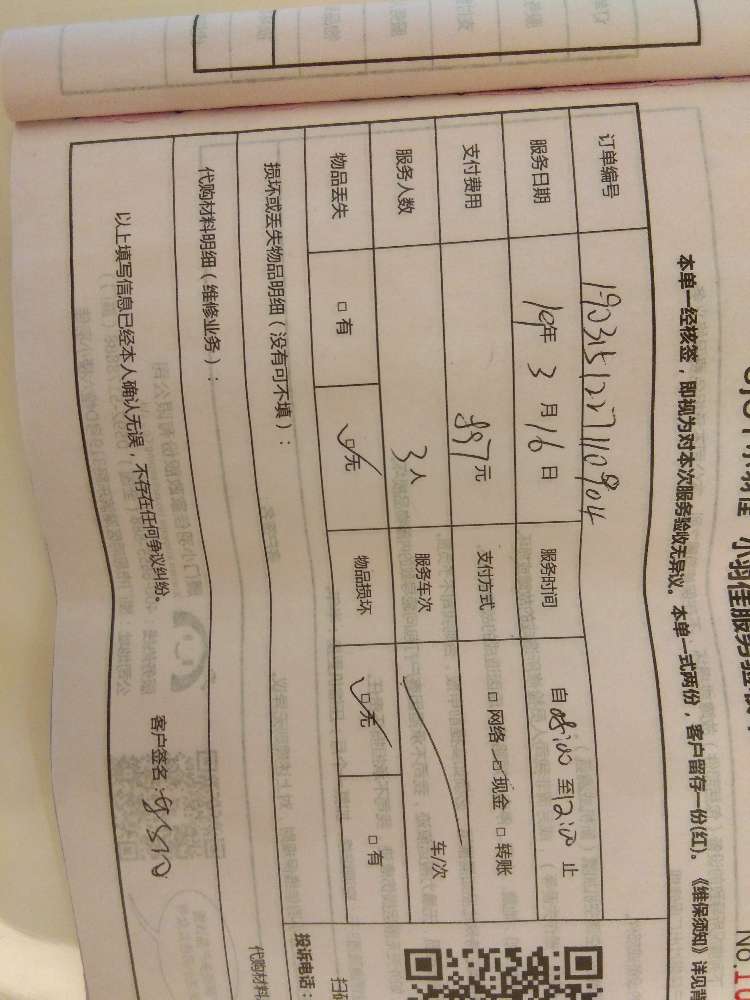 小羽佳服务验收
No.
本单一经核签，即视为对本次服务验收无异议。本单一式两份，客户留存一份(红)。《维保须知》详见背
订单编号 190315122710904
服务日期 19年 3 月 16 日 服务时间 自 08:00 至 12:00 止
支付费用 557 元 支付方式 □ 网络 □ 现金 □ 转账
服务人数 3 人 服务车次 车/次
物品丢失 □ 有 □ 无 物品损坏 □ 无 □ 有
损坏或丢失物品明细（没有可不填）：
投诉电话：
代购材料明细（维修业务）：
代购材料
以上填写信息已经本人确认无误，不存在任何争议纠纷。
客户签名:
扫码